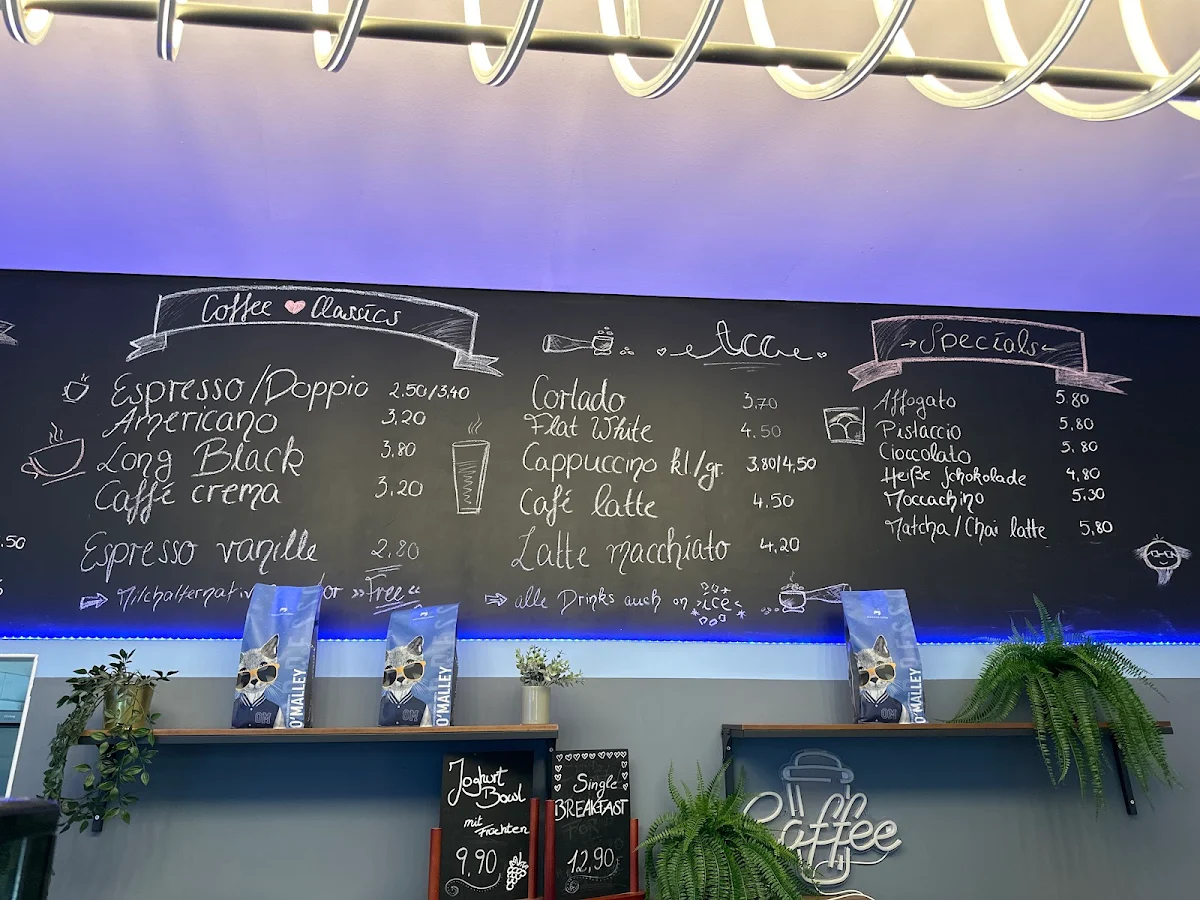 Coffee Classics
Espresso/Doppio 2.50/3,40
Americano 3,20
Long Black 3,80
Caffé crema 3,20
Espresso vanille 2,80
or »Free«
Cortado 3.70
Flat White 4.50
Cappuccino kl./gr. 3,80/4,50
Café latte 4.50
Latte macchiato 4,20
alle Drinks auch on ice
Specials
Affogato 5.80
Pistaccio 5,80
Cioccolato 5,80
Heiße Schokolade 4,80
Moccachino 5.30
Matcha/Chai latte 5,80
.50
O'MALLEY
OM
O'MALLEY
OM
O'MALLEY
OM
Joghurt
Bowl
mit
Früchten
9,90
Single
BREAKFAST
12,90
Caffee